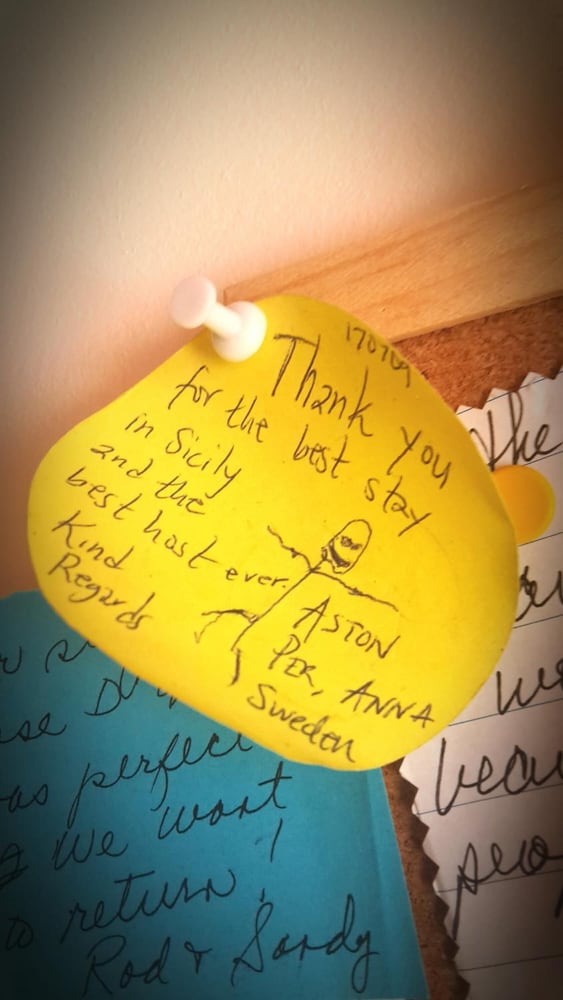 170709
Thank you
for the best stay
in Sicily
and the
best host ever
Kind
Regards
ASTON
PER, ANNA
Sweden
as perfect
we want
to return!
Rod & Sandy
the